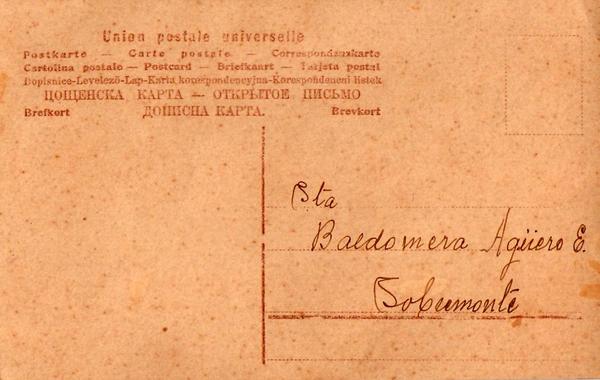 Union postale universelle
Postkarte — Carte postale — Correspondenzkarte
Cartolina postale — Postcard — Briefkaart — Tarjeta postal
Dopisnice-Levelező-Lap-Karta korespondencyjna-Korespondenčni listek
ПОЩЕНСКА КАРТА — ОТКРЫТОЕ ПИСЬМО
Brefkort ДОПИСНА КАРТА. Brevkort
Sta
Baldomera Agüero E.
Sobremonte